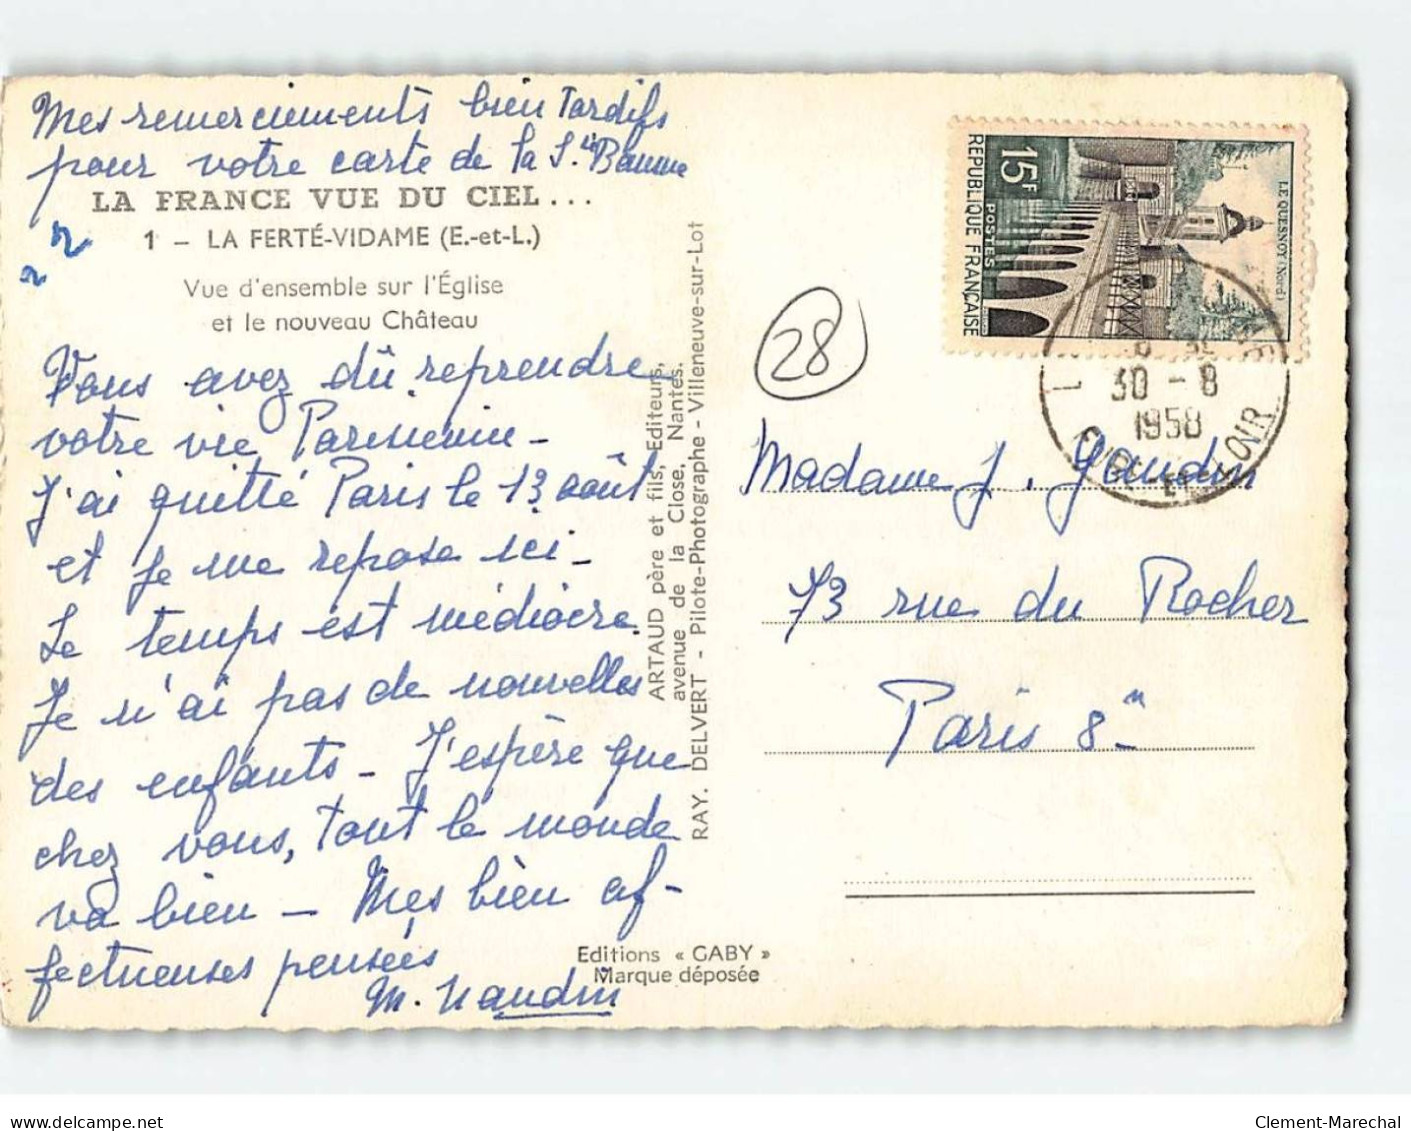 Mes remerciements bien tardifs
pour votre carte de la Ste Baume
LA FRANCE VUE DU CIEL...
1 - LA FERTÉ-VIDAME (E.-et-L.)
Vue d'ensemble sur l'Église
et le nouveau Château
Vous avez dû reprendre
votre vie Parisienne -
J'ai quitté Paris le 13 août
et je me repose ici -
Le temps est médiocre
Je n'ai pas de nouvelles
des enfants - J'espère que
chez vous, tout le monde
va bien - Mes bien af-
fectueuses pensées
M. Naudin
ARTAUD père et fils, Editeurs,
avenue de la Close, Nantes.
RAY. DELVERT - Pilote-Photographe - Villeneuve-sur-Lot
Editions « GABY »
Marque déposée
28
15F
POSTES
REPUBLIQUE FRANÇAISE
LE QUESNOY (Nord)
30 - 8
1958
EURE ET LOIR
Madame J. Gaudin
73 rue du Rocher
Paris 8e
delcampe.net
Clement-Marechal